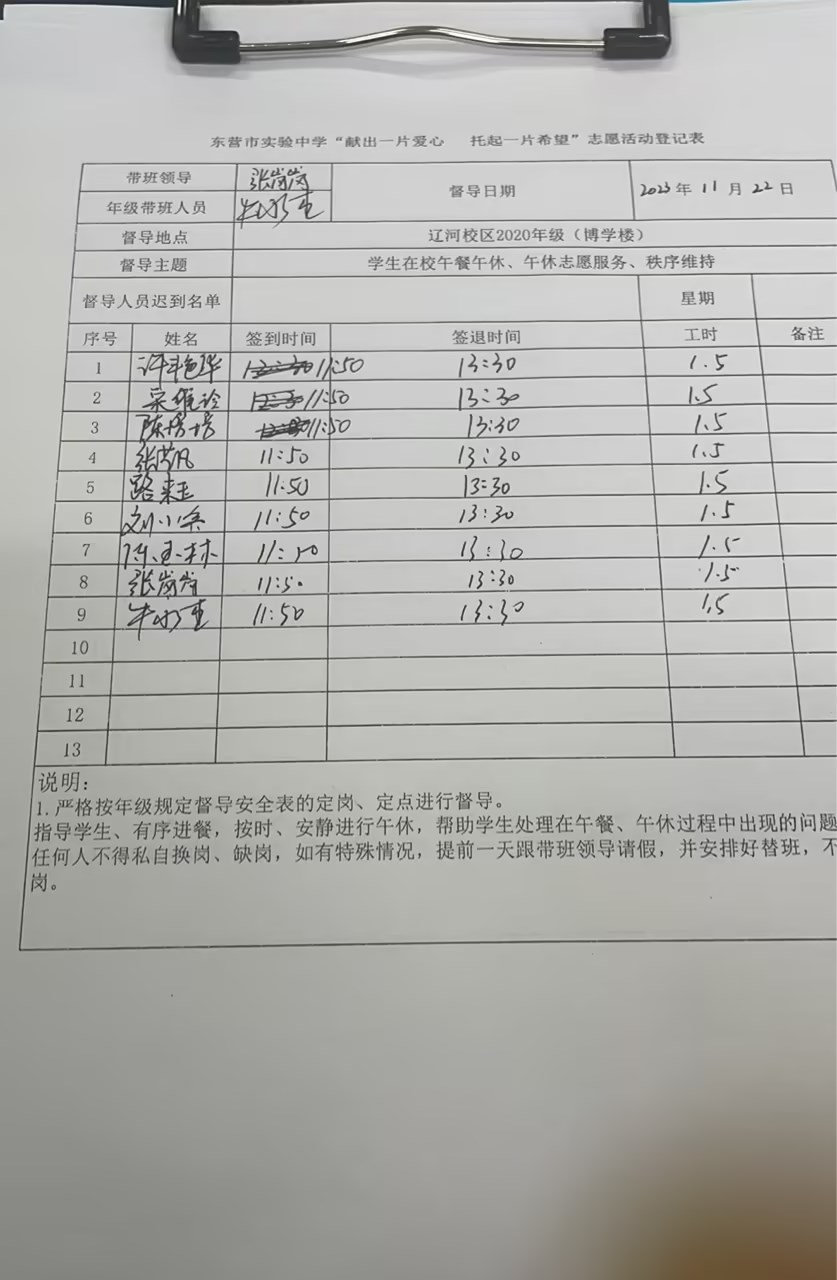 东营市实验中学“献出一片爱心 托起一片希望”志愿活动登记表
带班领导 张岗岗 督导日期 2023年11月22日
年级带班人员
督导地点 辽河校区2020年级（博学楼）
督导主题 学生在校午餐午休、午休志愿服务、秩序维持
督导人员迟到名单 星期
序号 姓名 签到时间 签退时间 工时 备注
1 许艳华 11:50 13:30 1.5
2 11:50 13:30 1.5
3 陈培培 11:50 13:30 1.5
4 张芳凡 11:50 13:30 1.5
5 路来玉 11:50 13:30 1.5
6 刘小兵 11:50 13:30 1.5
7 陈玉林 11:50 13:30 1.5
8 张岗岗 11:50 13:30 1.5
9 11:50 13:30 1.5
10
11
12
13
说明：
1.严格按年级规定督导安全表的定岗、定点进行督导。
指导学生、有序进餐，按时、安静进行午休，帮助学生处理在午餐、午休过程中出现的问题
任何人不得私自换岗、缺岗，如有特殊情况，提前一天跟带班领导请假，并安排好替班，不
岗。